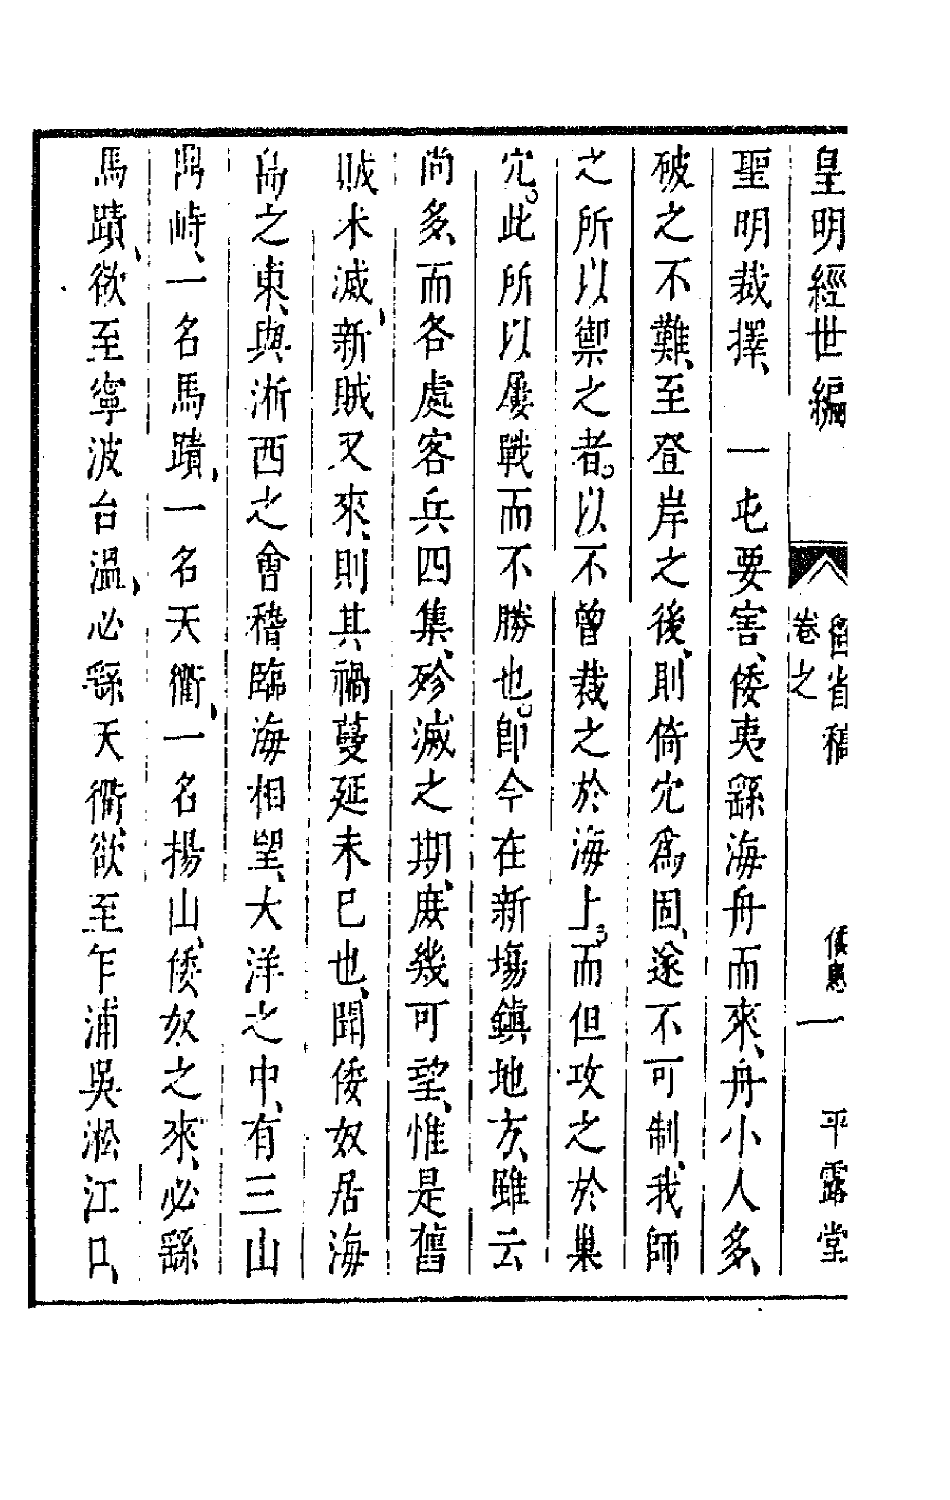 皇明經世編
留省稿
卷之
倭患 一
平露堂
聖明裁擇、 一屯要害、倭夷繇海舟而來、舟小人多、
破之不難、至登岸之後、則倚穴爲固、遂不可制、我師
之所以禦之者。以不曾裁之於海上。而但攻之於巢
穴。此所以屢戰而不勝也。卽今在新塲鎮地方、雖云
尚多、而各處客兵四集、殄滅之期、庶幾可望、惟是舊
賊未滅、新賊又來、則其禍蔓延未已也、聞倭奴居海
島之東、與淅西之會稽臨海相望、大洋之中、有三山
鼎峙、一名馬蹟、一名天衢、一名揚山、倭奴之來、必繇
馬蹟、欲至寧波台溫、必繇天衢、欲至乍浦吳淞江口、